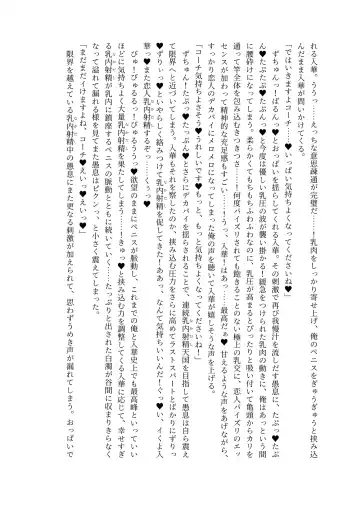 れる人華。ううっ……えっちな意思疎通が完璧だ……！乳肉をしっかり寄せ上げ、俺のペニスをぎゅうぎゅうと挟み込
んだまま人華が問いかけてくる。
「ではいきますよコーチ♥いっぱい気持ちよくなってくださいね♥」
ずちゅんっ！ぱるんっ♥とおっぱいを揺らしてくる人華。その刺激で再び我慢汁を流しだす愚息に、たぷっ♥たぷ
ん♥たぷ♥たぷんっ♥と今度は優しい乳圧の波が襲い掛かる！緩急をつけられた乳肉の動きに、俺はあっという間
に腰砕けになってしまう。柔らかでもちもちふわふわなのに、乳圧が高まるとぴったりと吸い付いて亀頭からカリを
通って竿全体を包み込むむきつきつおっぱい……！何度パイズリされても飽きることのない極上の乳交に、恋人パイズリのエッ
センスが加わって精神的な充足感もすごいっ……！「うああっ……人華っ……！最高だ♥」甘えるような声をあげながら、
すっかり恋人のデカパイにメロメロになってしまった俺の声を聴いて人華が嬉しそうな声を上げる。
「コーチ気持ちよさそう♥うれしいです♥もっと、もっと気持ちよくなってくださいね♥」
ずちゅん！たぷっ♥たぷんっ♥とさらにデカパイを揺らされることで、連続乳内射精天国を目指して愚息は自ら震え
て限界へと近づいてしまう。人華もそれを察したのか、挟み込む圧力をさらに高めてラストスパートとばかりにずりっ
♥ずりぃっ♥といやらしく絡みつけて乳内射精を促してきた！ああっ、なんて気持ちいいんだ！くっ♥い、イくよ人
華っ♥また恋人乳内射精するぞっ……くうっ♥
びゅ！びゅるるっ！びゅるうぅっ♥欲望のままにペニスが脈動し、これまでの俺と人華史上でも最高峰といっていい
ほどに気持ちよく大量乳内射精を果たしてしまう……！きゅっ♥と挟み込む力を調整してくる人華に応じて、幸せすぎ
る乳内射精が乳内に鎮座するペニスの脈動とともに続いていく……。たっぷりと出された白濁が谷間に収まりきらなく
なって溢れて漏れる様を見てまた愚息はビクンっ、と小さく震えてしまった。
「まだまだイけますよね、コーチ♥えいっ♥えいっ♥」
限界を越えている乳内射精中の愚息にまた更なる刺激が加えられて、思わずうめき声が漏れてしまう。おっぱいで